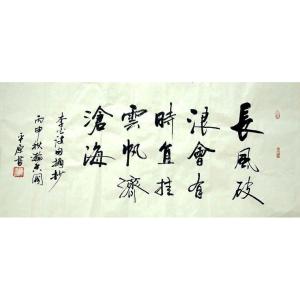 長風破
浪會有
時直挂
雲帆濟
滄海
李白詩句摘抄
丙申秋